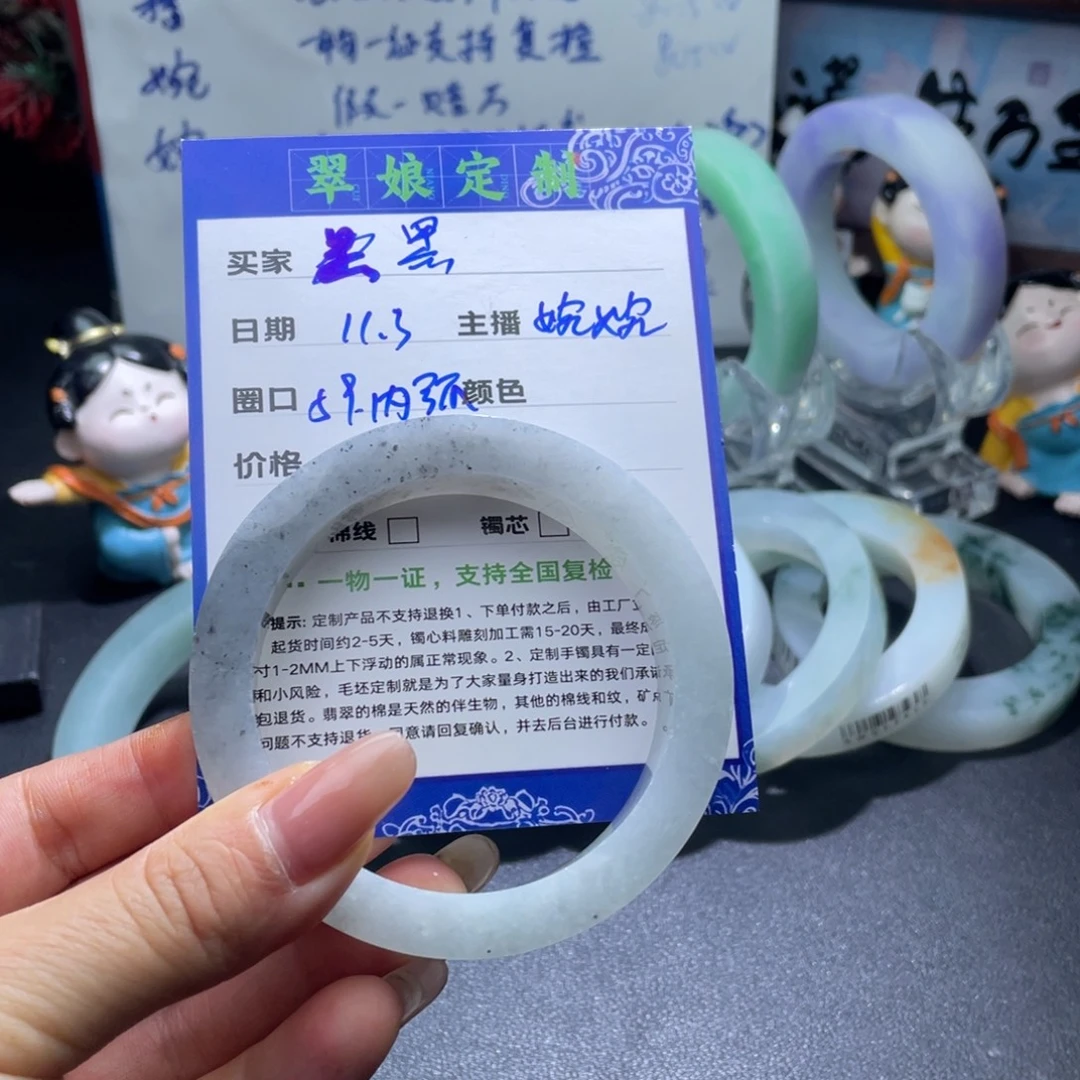 婉
一物一证支持复检
假一赔万
翠娘定制
买家 黑
日期 11.3 主播 婉婉
圈口 内弧 颜色
价格
棉线 镯芯
一物一证，支持全国复检
提示: 定制产品不支持退换1、下单付款之后，由工厂
起货时间约2-5天，镯心料雕刻加工需15-20天，最终
寸1-2MM上下浮动的属正常现象。2、定制手镯具有一定
和小风险，毛坯定制就是为了大家量身打造出来的我们承
包退货。翡翠的棉是天然的伴生物，其他的棉线和纹，矿
问题不支持退货 意请回复确认，并去后台进行付款。